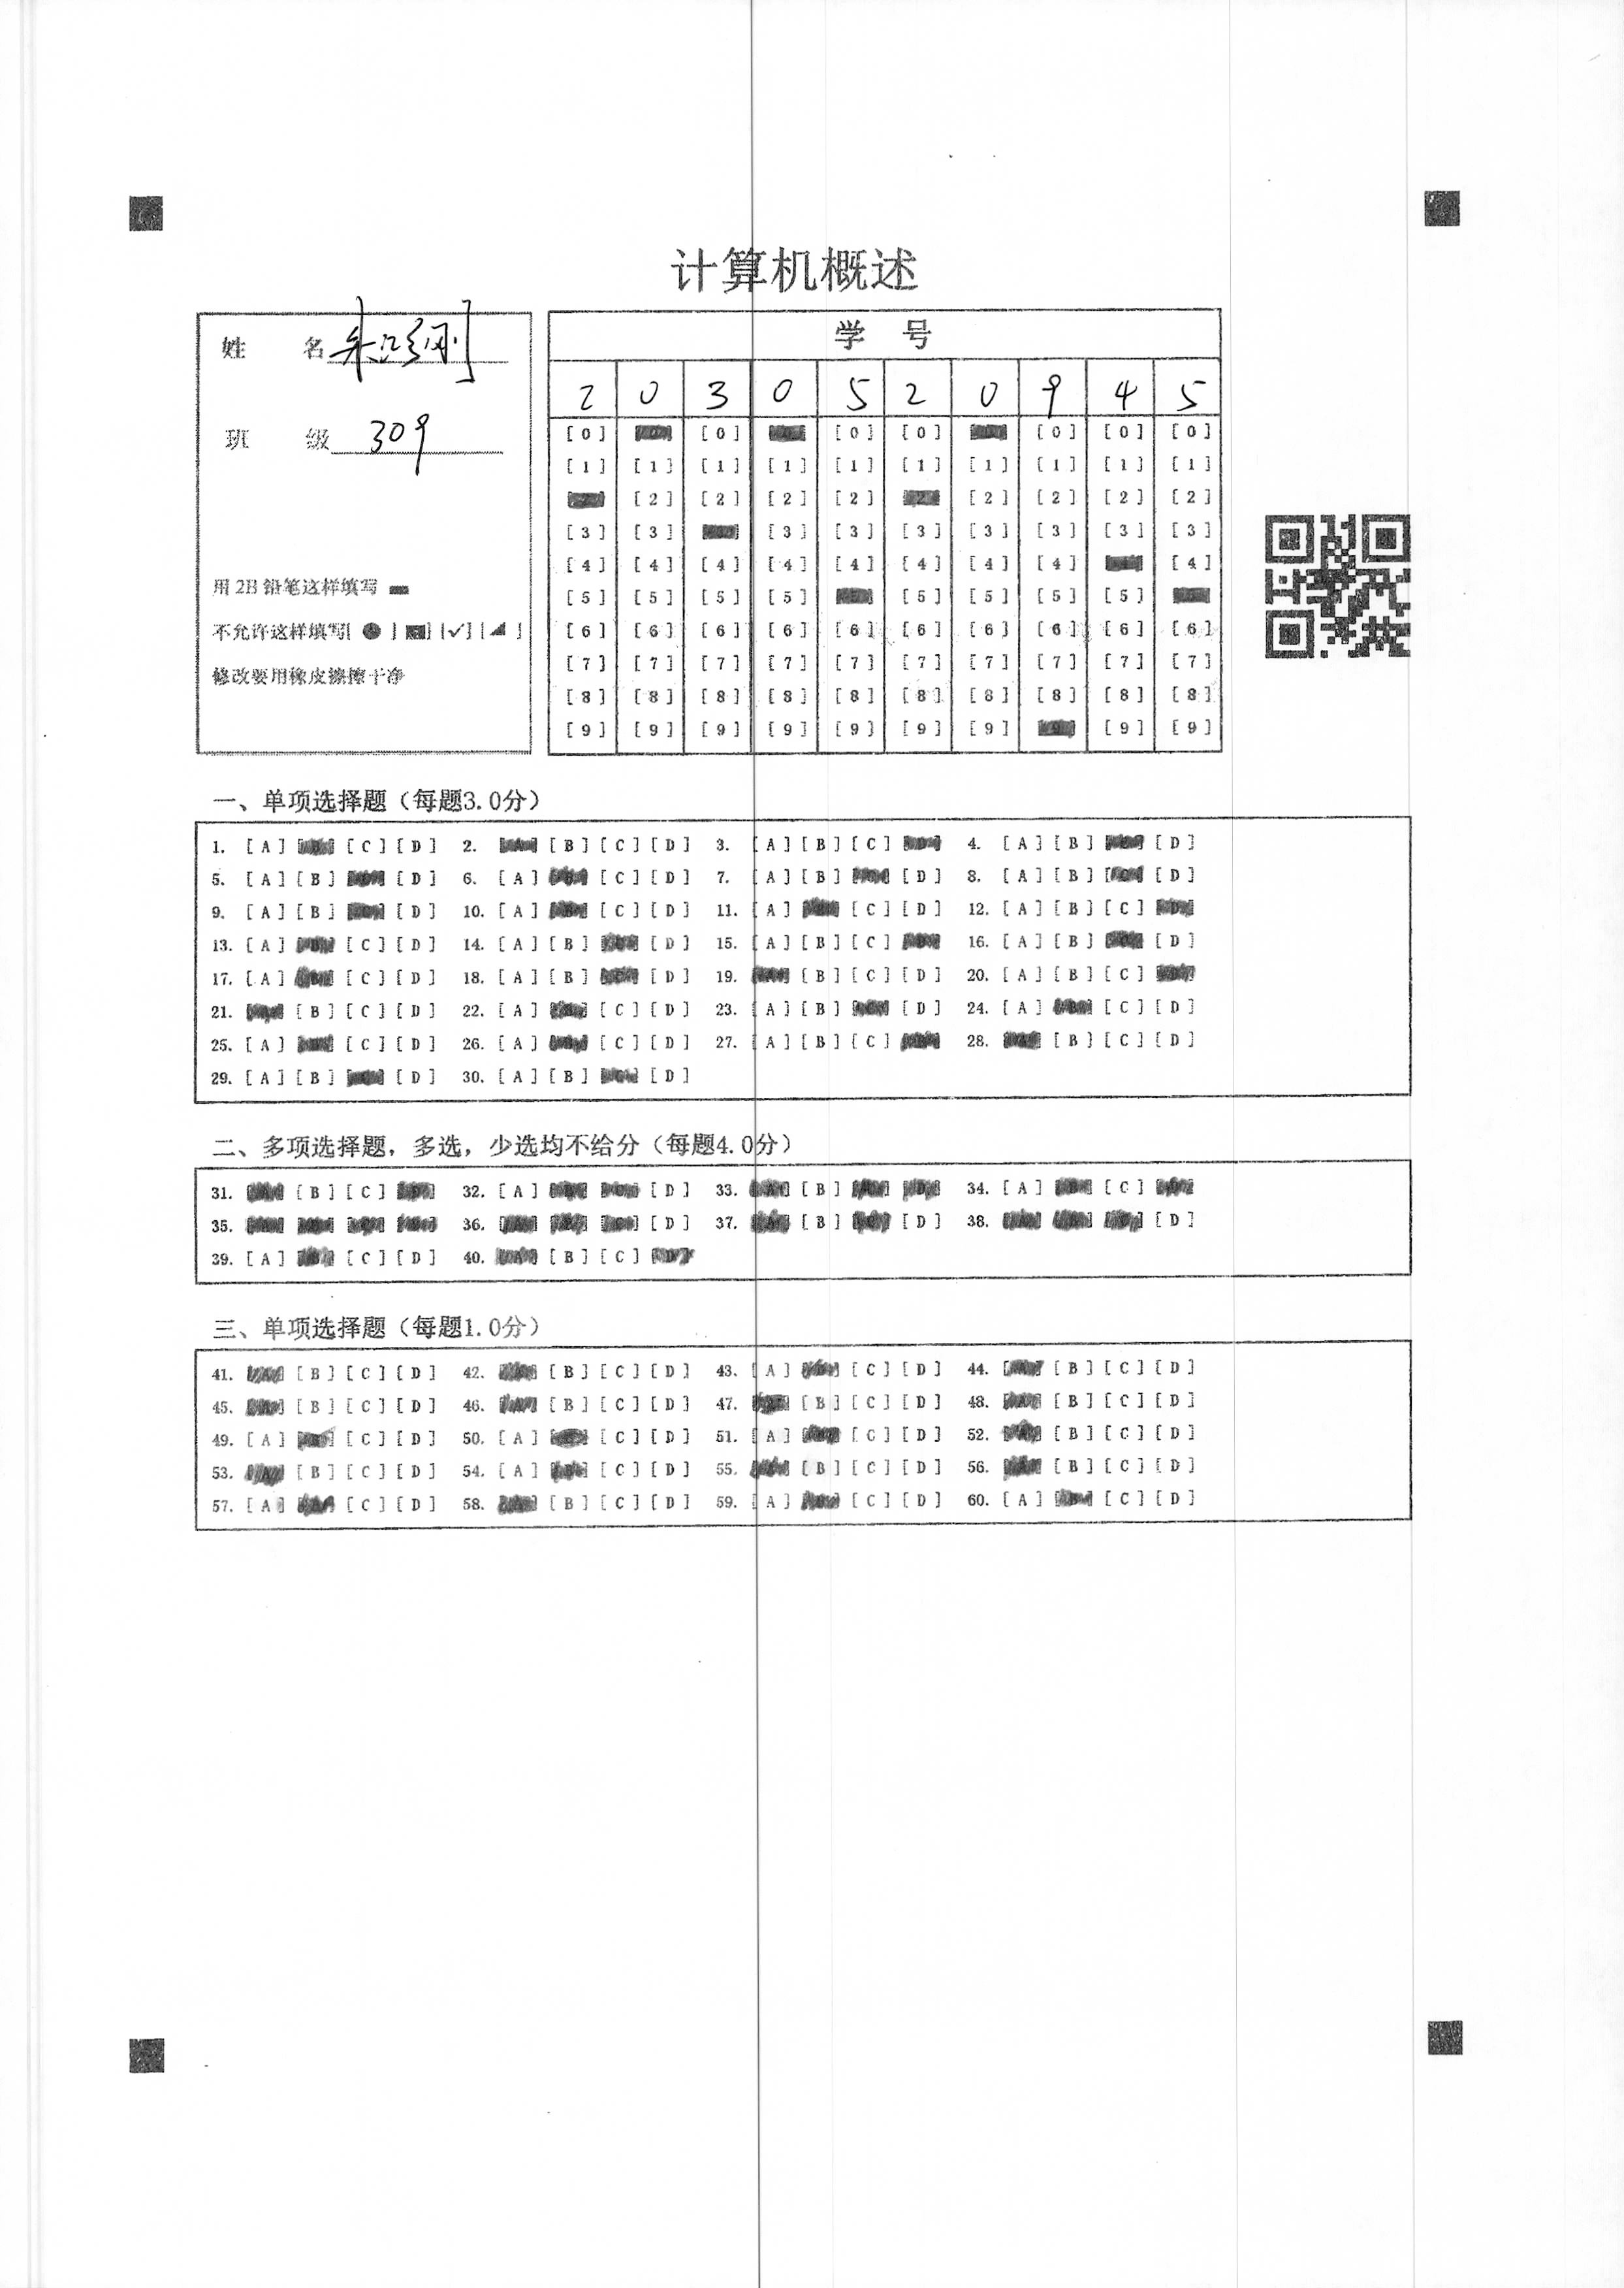 计算机概述
姓 名
班 级 309
用2B铅笔这样填写
不允许这样填写[ ● ] [■] [✓] [◢ ]
修改要用橡皮擦擦干净
学 号
2 0 3 0 5 2 0 9 4 5
[0] [0] [0] [0] [0] [0] [0] [0] [0] [0]
[1] [1] [1] [1] [1] [1] [1] [1] [1] [1]
[2] [2] [2] [2] [2] [2] [2] [2] [2] [2]
[3] [3] [3] [3] [3] [3] [3] [3] [3]
[4] [4] [4] [4] [4] [4] [4] [4] [4]
[5] [5] [5] [5] [5] [5] [5] [5]
[6] [6] [6] [6] [6] [6] [6] [6] [6] [6]
[7] [7] [7] [7] [7] [7] [7] [7] [7] [7]
[8] [8] [8] [8] [8] [8] [8] [8] [8] [8]
[9] [9] [9] [9] [9] [9] [9] [9] [9] [9]
一、单项选择题（每题3.0分）
1. [A] [B] [C] [D] 2. [A] [B] [C] [D] 3. [A] [B] [C] [D] 4. [A] [B] [D]
5. [A] [B] [D] 6. [A] [C] [D] 7. [A] [B] [D] 8. [A] [B] [C] [D]
9. [A] [B] [D] 10. [A] [C] [D] 11. [A] [C] [D] 12. [A] [B] [C]
13. [A] [C] [D] 14. [A] [B] [D] 15. [A] [B] [C] 16. [A] [B] [D]
17. [A] [C] [D] 18. [A] [B] [D] 19. [B] [C] [D] 20. [A] [B] [C]
21. [B] [C] [D] 22. [A] [C] [D] 23. [A] [B] [D] 24. [A] [C] [D]
25. [A] [C] [D] 26. [A] [C] [D] 27. [A] [B] [C] 28. [B] [C] [D]
29. [A] [B] [D] 30. [A] [B] [D]
二、多项选择题，多选，少选均不给分（每题4.0分）
31. [B] [C] 32. [A] [D] 33. [B] 34. [A] [C]
35. 36. [D] 37. [B] [D] 38. [D]
39. [A] [C] [D] 40. [A] [B] [C] [D]
三、单项选择题（每题1.0分）
41. [B] [C] [D] 42. [B] [C] [D] 43. [A] [C] [D] 44. [B] [C] [D]
45. [B] [C] [D] 46. [B] [C] [D] 47. [B] [C] [D] 48. [B] [C] [D]
49. [A] [C] [D] 50. [A] [C] [D] 51. [A] [C] [D] 52. [B] [C] [D]
53. [B] [C] [D] 54. [A] [C] [D] 55. [B] [C] [D] 56. [B] [C] [D]
57. [A] [C] [D] 58. [B] [C] [D] 59. [A] [C] [D] 60. [A] [C] [D]